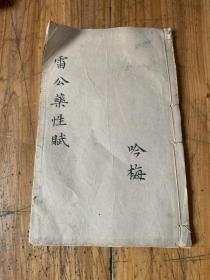 雷公藥性賦
吟梅